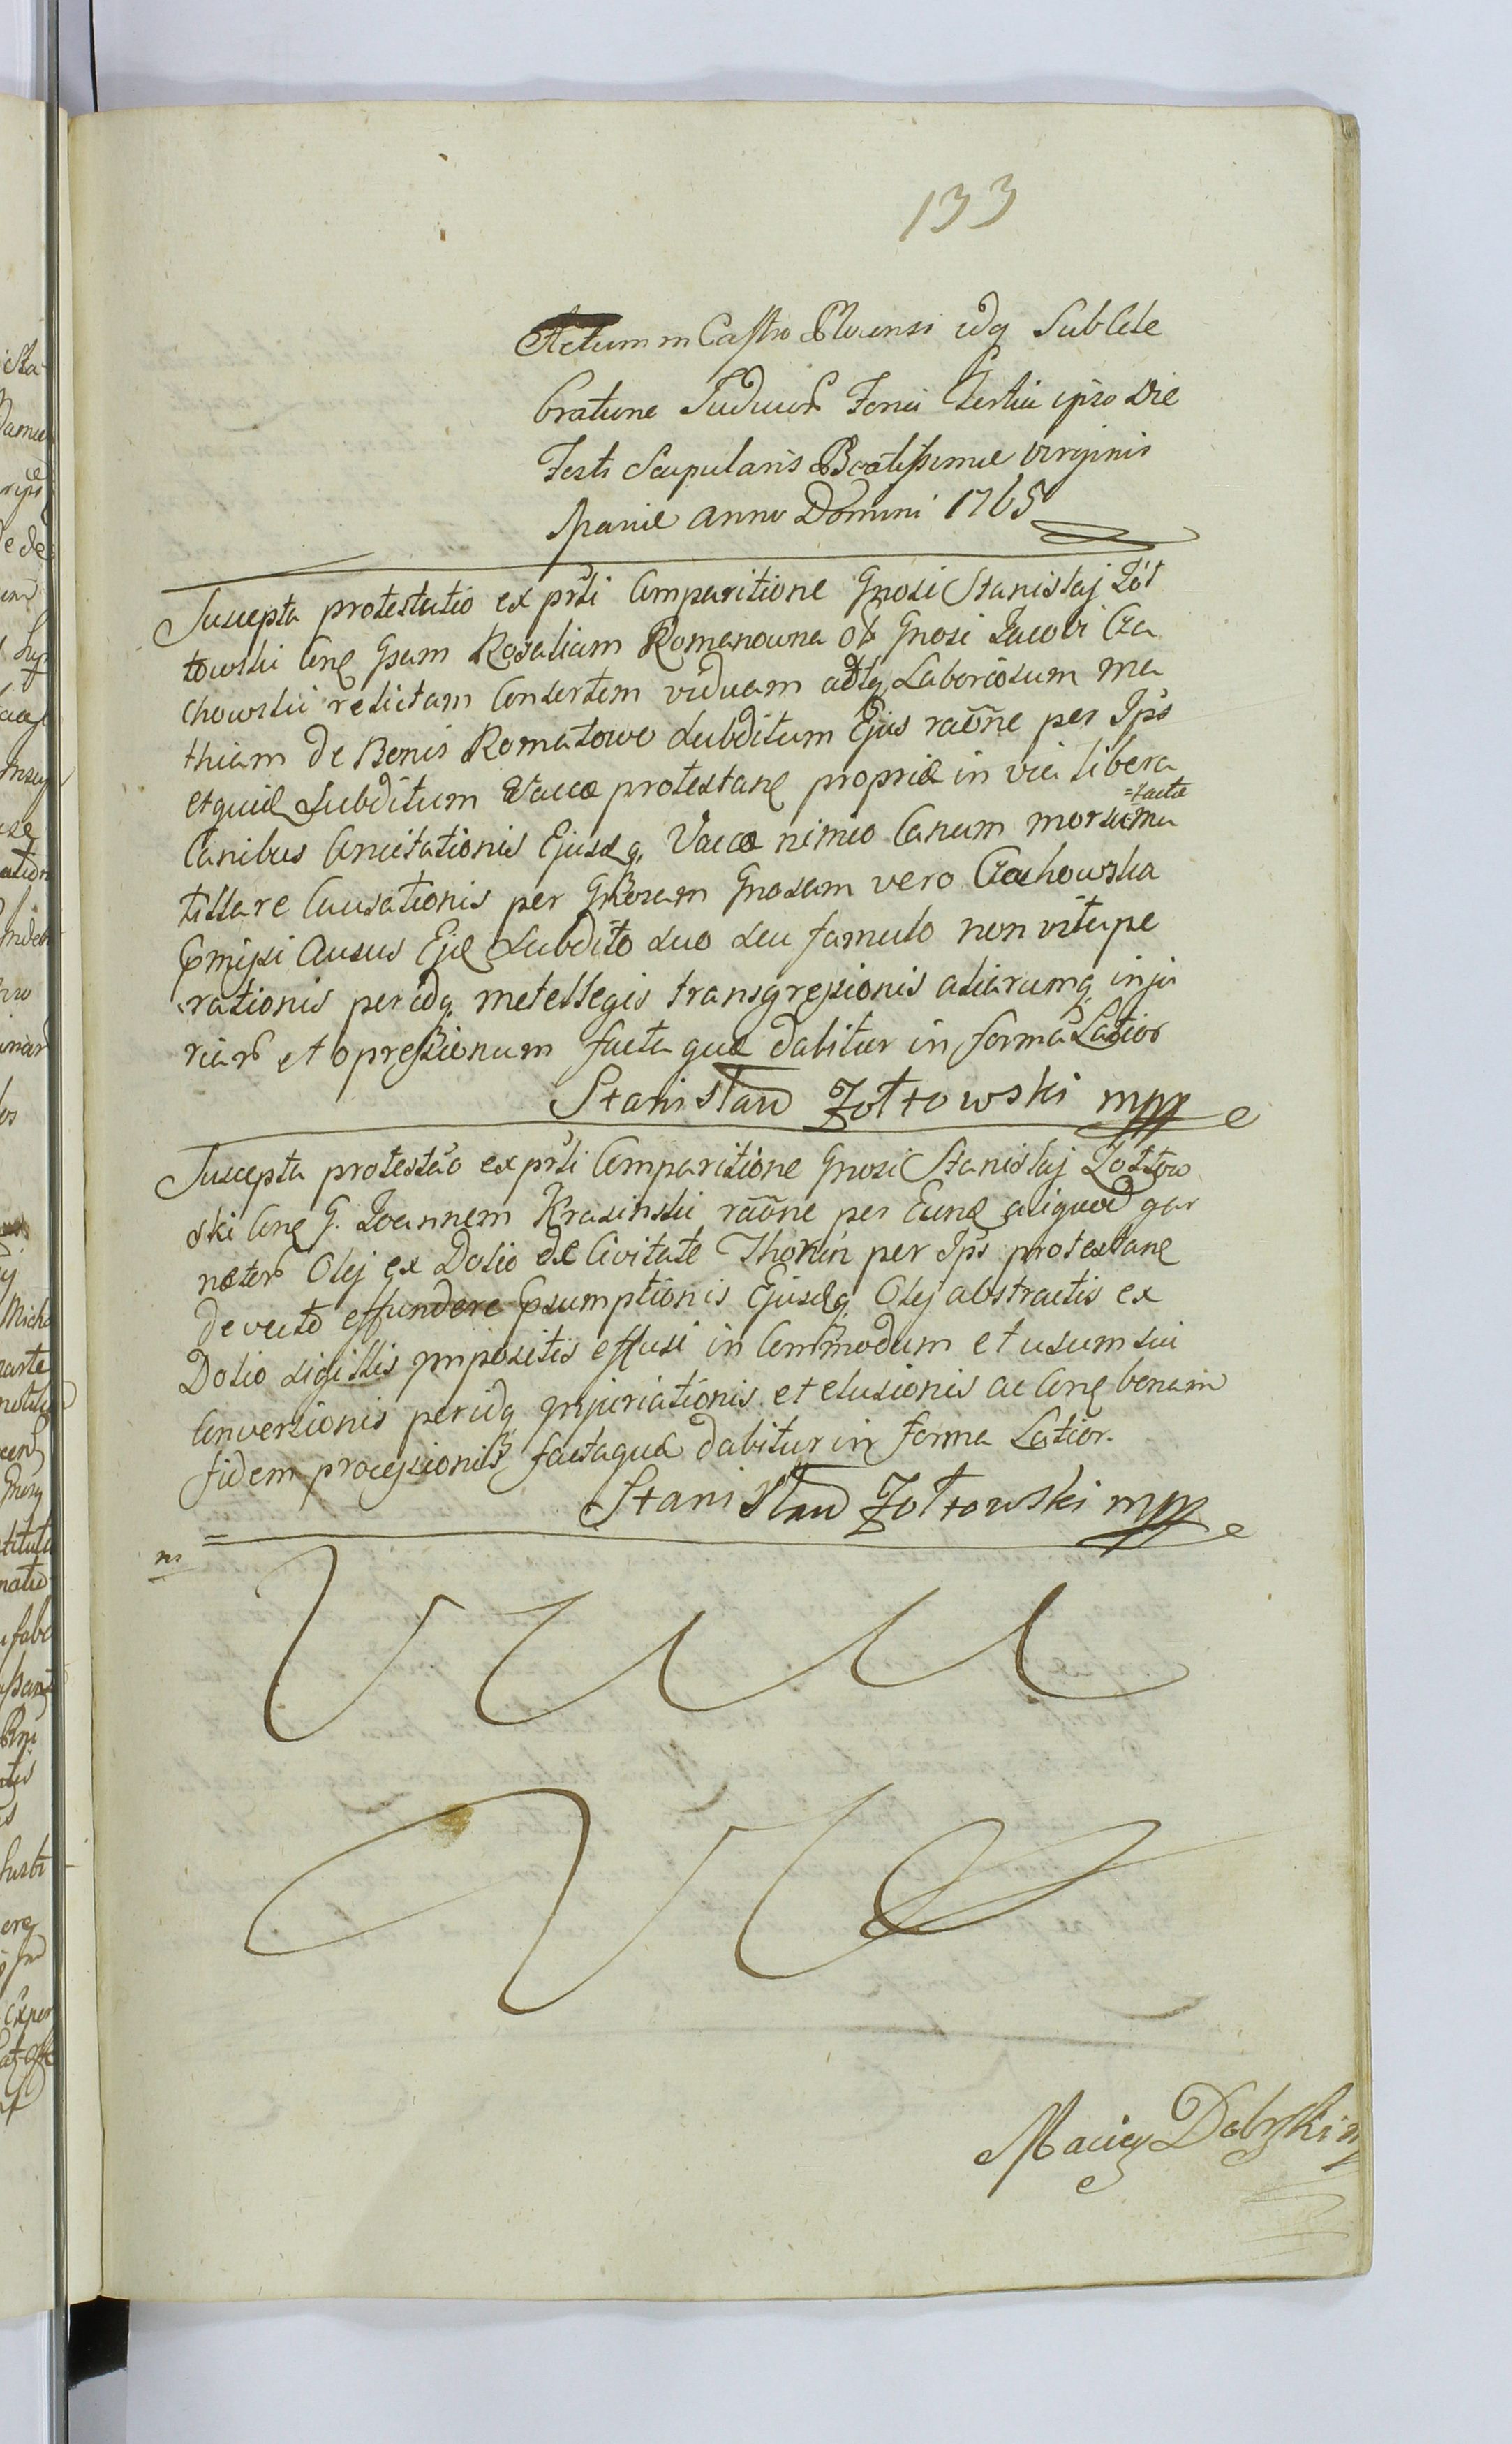 133
Actum in Castro Plocensi idq sub Cele
bratione Judicior Feria Tertia ipso die
Festi Scapularis Beatissimae Virginis
Mariae anno Domini 1765
Suscepta protestatio ex prsti Comparitione Gnosi Stanislaj Żół
towski Cnę Gsam Rosaliam Romanowna olĩ Gnosi Jacobi Cza
chowskii relictam Consortem viduam adtq Laboriosum Ma
thiam de Bonis Romatowo subditum Ejus raõne per Ips
etquiæ subditum Vaccæ protestanę propriæ in via libera
Canibus Concitationis Ejusdq Vaccæ nimio Canum morsu ma
=factæ
tillare Causationis per Gnosam vero Czachowska
Comissi Ausus Ejæ subdito suo seu famulo non vitupe
rationis per idq metellegis transgressionis aliarumq inju
riar et opressionum facta quæ dabitur in forma Latior
Stanisław Zołtowski mpp
Suscepta protestão ex prsti Comparitione Gnosi Stanislaj Żołtow
ski Cnę G. Joannem Krasinski raõne per Eunę aliquod gar
nceter Olej ex Dolio de Civitate Thorun per Ips protestanę
devecto effundere Consumptionis Ejusdq Olej abstractis ex
Dolio sigillis impositis effusi in Commodum et usum sui
Conversionis per idq injuriationis et elusionis ac Cnę bonam
fidem processionis facta quæ dabitur in forma Latior.
Stanisław Zołtowski mpp
Maciej Dobrski